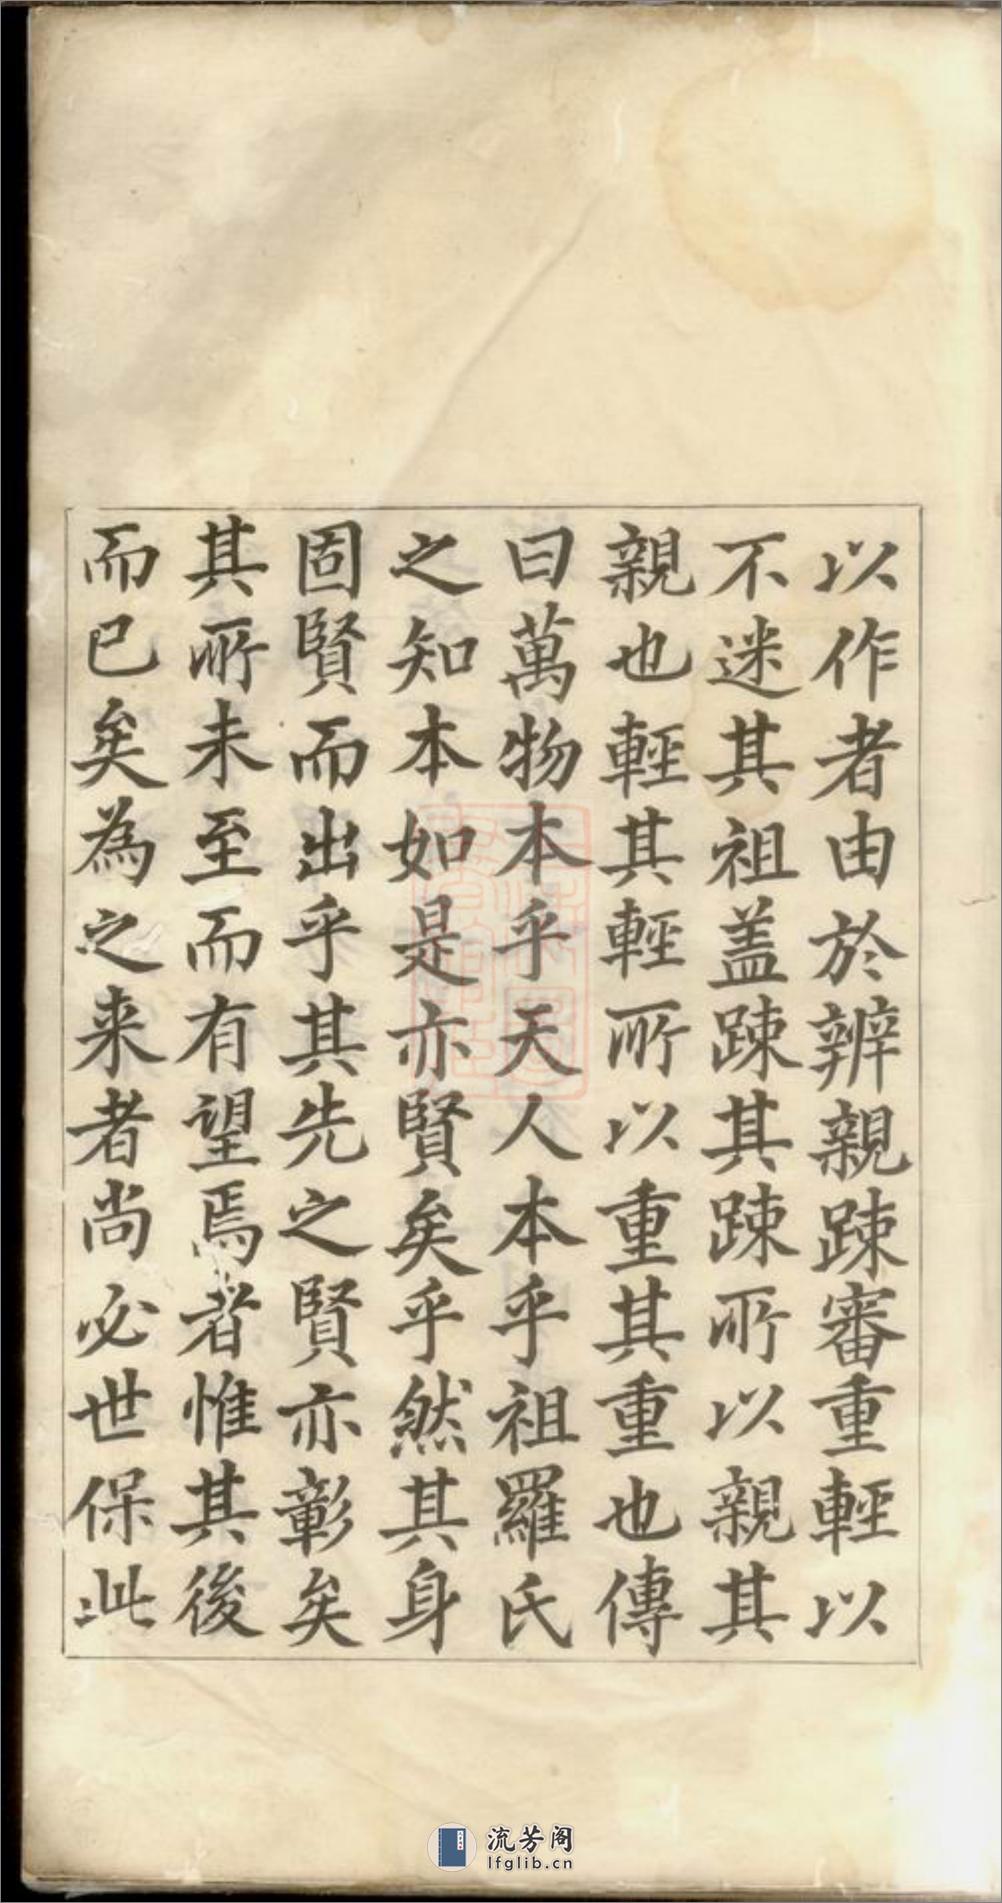 以作者由於辨親踈審重輕以
不迷其祖盖踈其踈所以親其
親也輕其輕所以重其重也傳
曰萬物本乎天人本乎祖羅氏
之知本如是亦賢矣乎然其身
固賢而出乎其先之賢亦彰矣
其所未至而有望焉者惟其後
而已矣為之来者尚必世保此
流芳阁
lfglib.cn